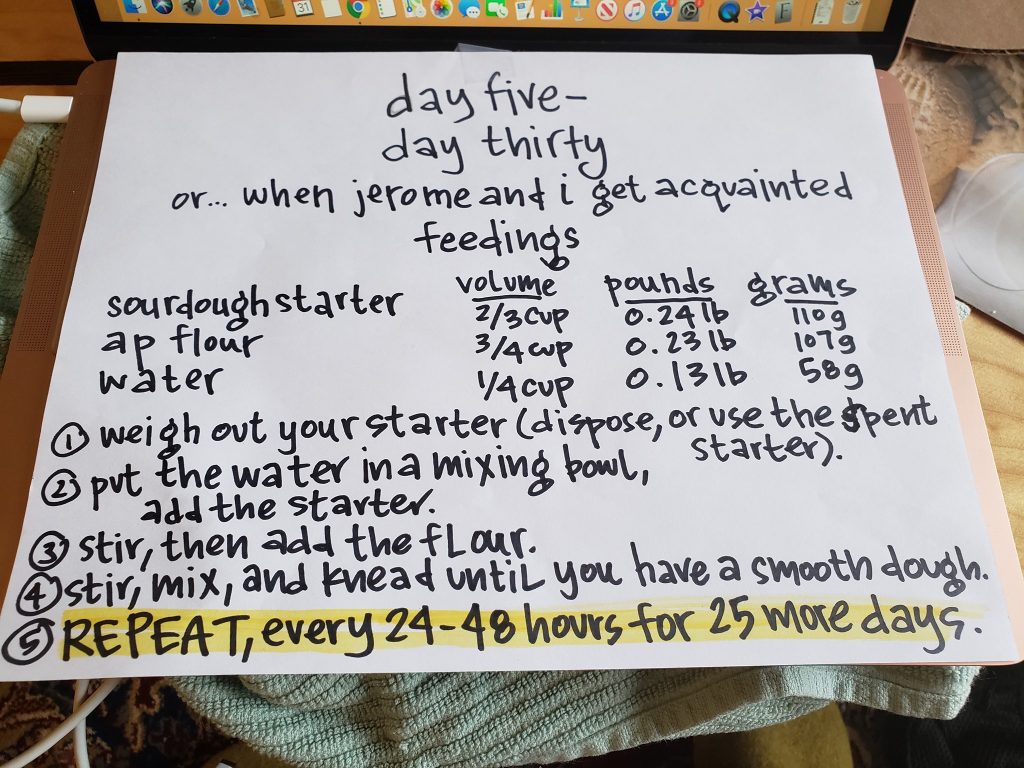 day five-
day thirty
or... when jerome and i get acquainted
feedings
volume pounds grams
sourdough starter 2/3 cup 0.24 lb 110g
ap flour 3/4 cup 0.23 lb 107g
water 1/4 cup 0.13 lb 58g
① weigh out your starter (dispose, or use the spent
starter).
② put the water in a mixing bowl,
add the starter.
③ stir, then add the flour.
④ stir, mix, and knead until you have a smooth dough.
⑤ REPEAT, every 24-48 hours for 25 more days.
31